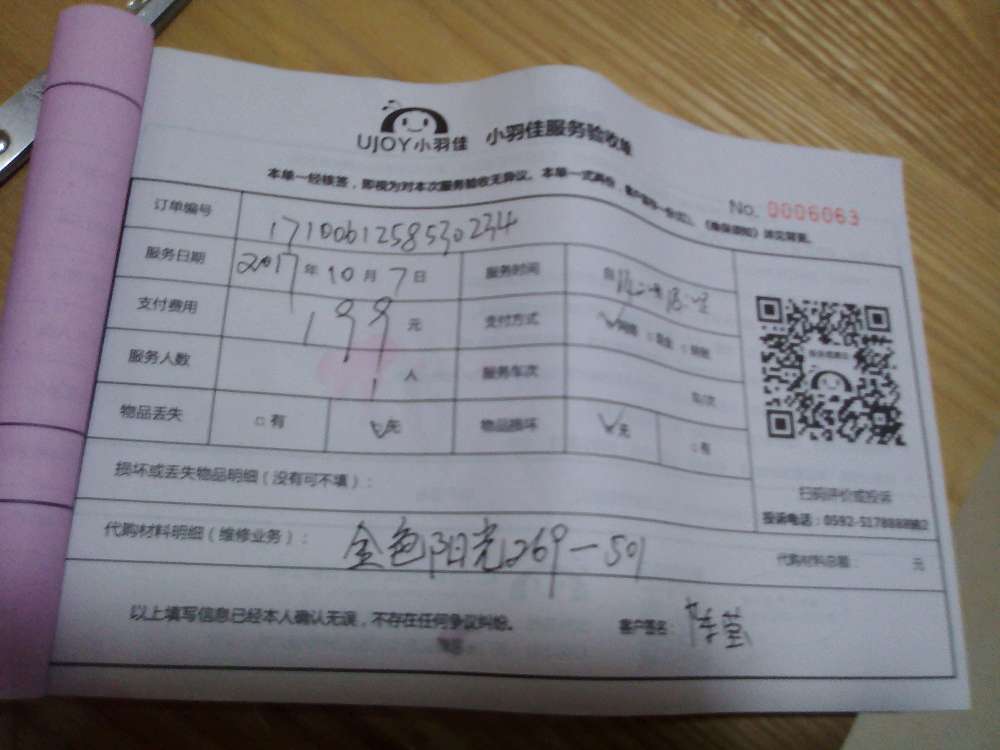 UJOY小羽佳 小羽佳服务验收单
本单一经核签，即视为对本次服务验收无异议。本单一式两份，
No. 0006063
订单编号 1710061258530234
服务日期 2017年10月7日 服务时间 自
支付费用 199元 支付方式 ✓网络 □现金 □
服务人数 人 服务车次 车/次
物品丢失 □有 ✓无 物品损坏 ✓无 □有
损坏或丢失物品明细（没有可不填）：
扫码评价或投诉
投诉电话：0592-5178888
代购材料明细（维修业务）： 金色阳光269-501 代购材料总额： 元
以上填写信息已经本人确认无误，不存在任何争议纠纷。 客户签名：陈莹